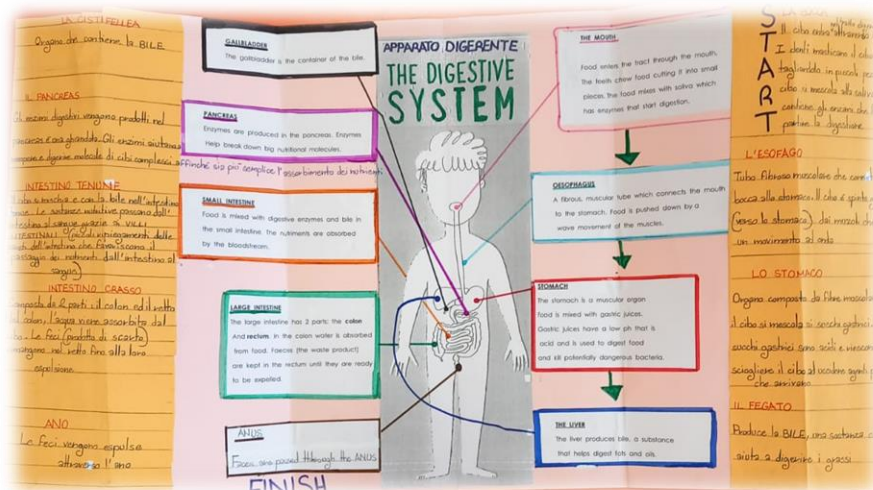 LA CISTIFELLEA
Organo che contiene la BILE
IL PANCREAS
enzimi digestivi vengono prodotti nel
pancreas è una ghiandola. Gli enzimi aiutano
e digerire molecole di cibi complessi affinché sia più semplice l'assorbimento dei nutrienti
INTESTINO TENUE
si mischia con la bile nell'intestino
Le sostanze nutritive passano dall'
intestino al sangue grazie ai VILLI
INTESTINALI (piccoli ripiegamenti delle
dell'intestino che favoriscono il
passaggio dei nutrienti dall'intestino al
sangue)
INTESTINO CRASSO
Composto da 2 parti: il colon ed il retto
colon, l'acqua viene assorbita dal
Le feci (prodotto di scarto)
vengono nel retto fino alla loro
espulsione
ANO
Le feci vengono espulse
attraverso l'ano
GALLBLADDER
The gallbladder is the container of the bile.
PANCREAS
Enzymes are produced in the pancreas. Enzymes
Help break down big nutritional molecules.
SMALL INTESTINE
Food is mixed with digestive enzymes and bile in
the small intestine. The nutriments are absorbed
by the bloodstream.
LARGE INTESTINE
The large intestine has 2 parts: the colon
And rectum. In the colon water is absorbed
from food. Faeces (the waste product)
are kept in the rectum until they are ready
to be expelled.
ANUS
Faeces are passed through the ANUS
FINISH
APPARATO DIGERENTE
THE DIGESTIVE
SYSTEM
THE MOUTH
Food enters the tract through the mouth.
The teeth chew food cutting it into small
pieces. The food mixes with saliva which
has enzymes that start digestion.
OESOPHAGUS
A fibrous, muscular tube which connects the mouth
to the stomach. Food is pushed down by a
wave movement of the muscles.
STOMACH
The stomach is a muscular organ
food is mixed with gastric juices.
Gastric juices have a low ph that is
acid and is used to digest food
and kill potentially dangerous bacteria.
THE LIVER
The liver produces bile, a substance
that helps digest fats and oils.
START
Il cibo entra attraverso
I denti masticano il cibo
tagliandolo in piccoli
cibo si mescola alla saliva
contiene gli enzimi che
partire la digestione
L'ESOFAGO
Tubo fibroso muscolare che
bocca allo stomaco. Il cibo è spinto
(verso lo stomaco), dai muscoli
un movimento ad onda
LO STOMACO
Organo composto da fibre
il cibo si mescola ai succhi gastrici
succhi gastrici sono acidi e
sciogliere il cibo ad uccidere agenti
che arrivano
IL FEGATO
Produce la BILE, una sostanza
aiuta a digerire i grassi